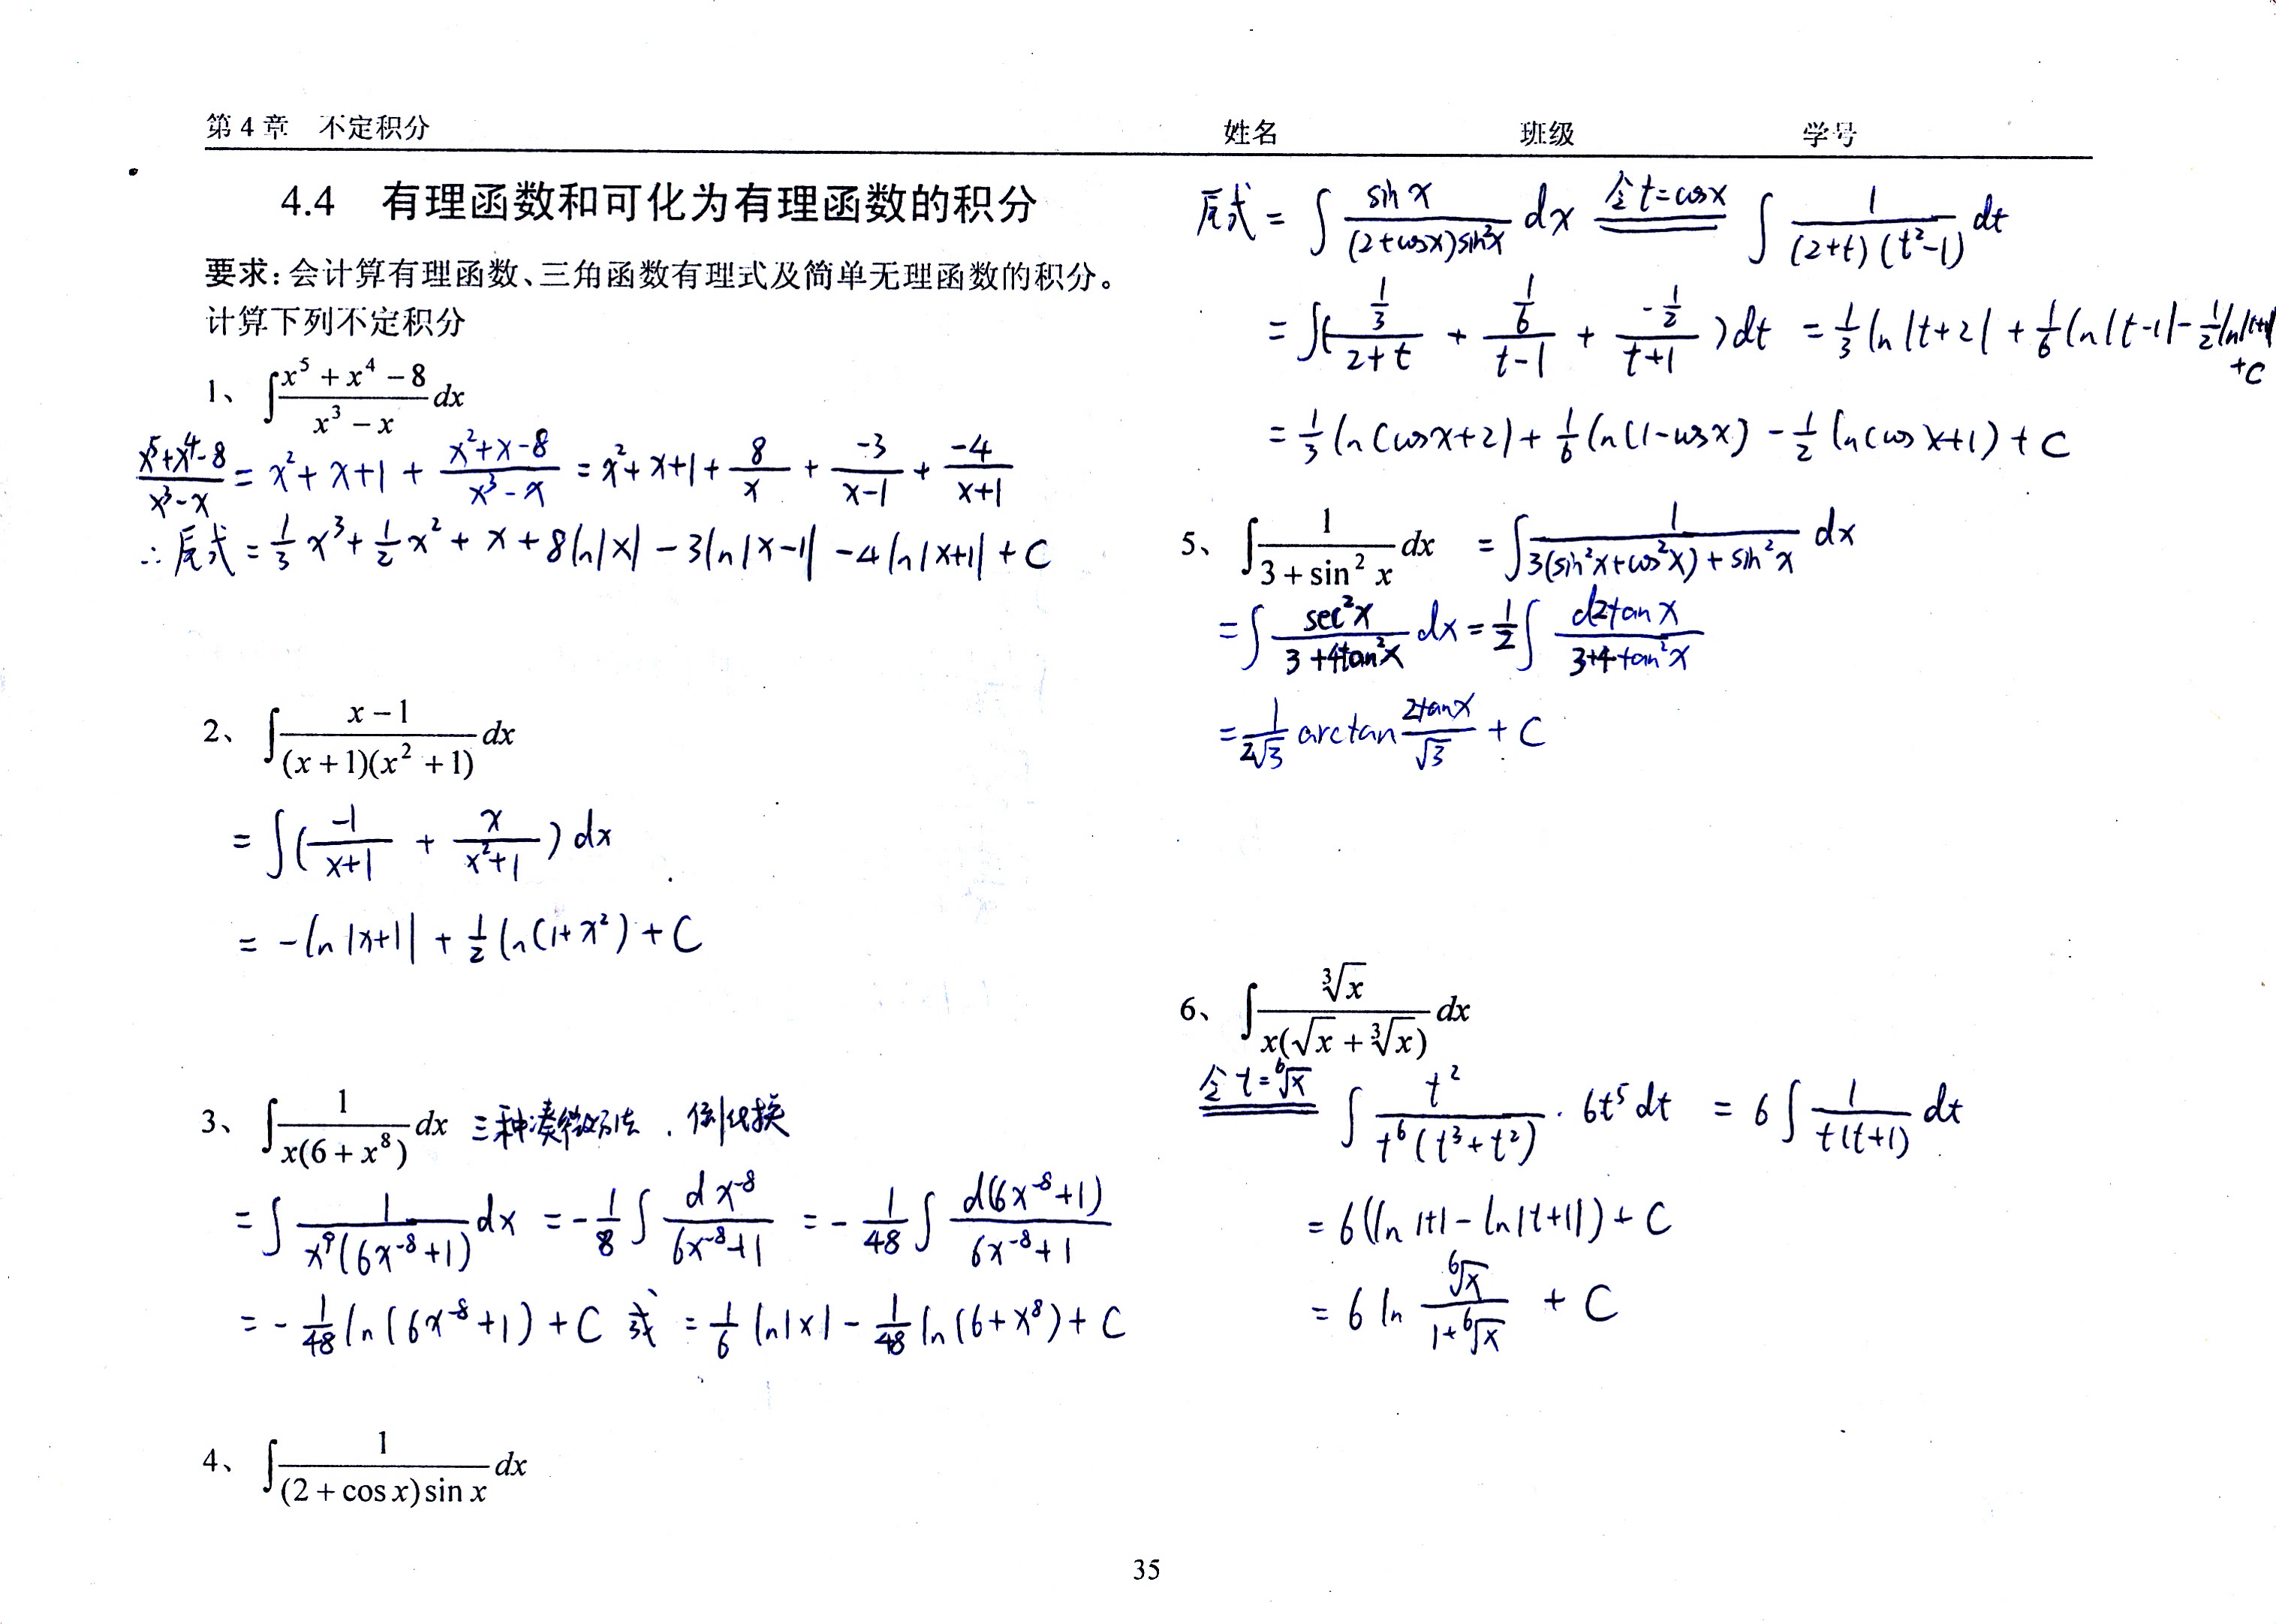 第4章 不定积分 姓名 班级 学号
4.4 有理函数和可化为有理函数的积分
要求：会计算有理函数、三角函数有理式及简单无理函数的积分。
计算下列不定积分
1、 ∫ (x⁵ + x⁴ − 8)/(x³ − x) dx
(x⁵+x⁴−8)/(x³−x) = x²+x+1 + (x²+x−8)/(x³−x) = x²+x+1 + 8/x + (−3)/(x−1) + (−4)/(x+1)
∴ 原式 = 1/3 x³ + 1/2 x² + x + 8ln|x| − 3ln|x−1| − 4ln|x+1| + C
2、 ∫ (x − 1)/((x + 1)(x² + 1)) dx
= ∫ ( (−1)/(x+1) + x/(x²+1) ) dx
= −ln|x+1| + 1/2 ln(1+x²) + C
3、 ∫ 1/(x(6 + x⁸)) dx 三种凑微分法、倒代换
= ∫ 1/(x⁹(6x⁻⁸+1)) dx = −1/8 ∫ dx⁻⁸/(6x⁻⁸+1) = −1/48 ∫ d(6x⁻⁸+1)/(6x⁻⁸+1)
= −1/48 ln(6x⁻⁸+1) + C 或 = 1/6 ln|x| − 1/48 ln(6+x⁸) + C
4、 ∫ 1/((2 + cos x) sin x) dx
原式 = ∫ sin x/((2+cosx)sin²x) dx 令t=cosx ∫ 1/((2+t)(t²−1)) dt
= ∫( (1/3)/(2+t) + (1/6)/(t−1) + (−1/2)/(t+1) )dt = 1/3 ln|t+2| + 1/6 ln|t−1| − 1/2 ln|t+1|
+C
= 1/3 ln(cosx+2) + 1/6 ln(1−cosx) − 1/2 ln(cosx+1) + C
5、 ∫ 1/(3 + sin² x) dx = ∫ 1/(3(sin²x+cos²x)+sin²x) dx
= ∫ sec²x/(3+4tan²x) dx = 1/2 ∫ d2tanx/(3+4tan²x)
= 1/(2√3) arctan 2tanx/√3 + C
6、 ∫ ∛x/(x(√x + ∛x)) dx
令t=⁶√x ∫ t²/(t⁶(t³+t²)) · 6t⁵dt = 6∫ 1/(t(t+1)) dt
= 6(ln|t| − ln|t+1|) + C
= 6 ln ⁶√x/(1+⁶√x) + C
35